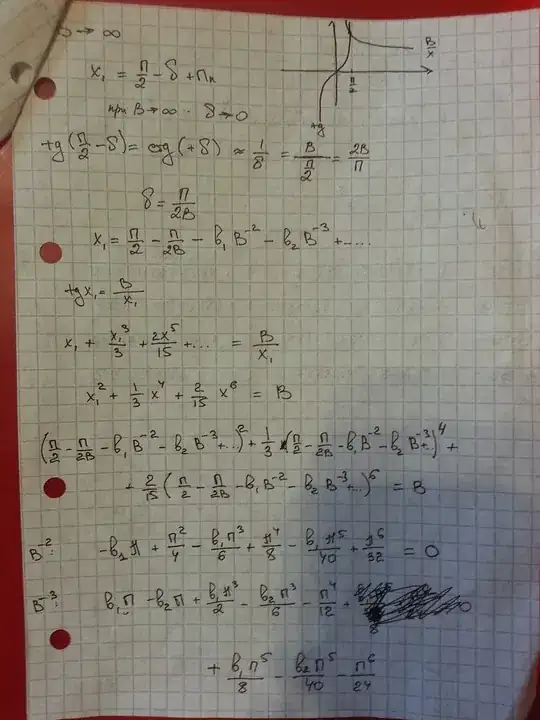 → ∞
B/x
π/2
tg
x₁ = π/2 - δ + πn
при B → ∞ δ → 0
tg(π/2 - δ) = ctg(+δ) ≈ 1/δ = B/(π/2) = 2B/π
δ = π/2B
x₁ = π/2 - π/2B - b₁B⁻² - b₂B⁻³ + ....
tgx₁ = B/x₁
x₁ + x₁³/3 + 2x⁵/15 + ... = B/x₁
x₁² + 1/3 x⁴ + 2/15 x⁶ = B
(π/2 - π/2B - b₁B⁻² - b₂B⁻³ + ...)² + 1/3 (π/2 - π/2B - b₁B⁻² - b₂B⁻³ + ...)⁴ +
+ 2/15 (π/2 - π/2B - b₁B⁻² - b₂B⁻³ + ...)⁶ = B
B⁻²: -b₁π + π²/4 - b₁π³/6 + π⁴/8 - b₁π⁵/40 + π⁶/32 = 0
B⁻³: b₁π - b₂π + b₁π³/2 - b₂π³/6 - π⁴/12 +
+ b₁π⁵/8 - b₂π⁵/40 - π⁶/24